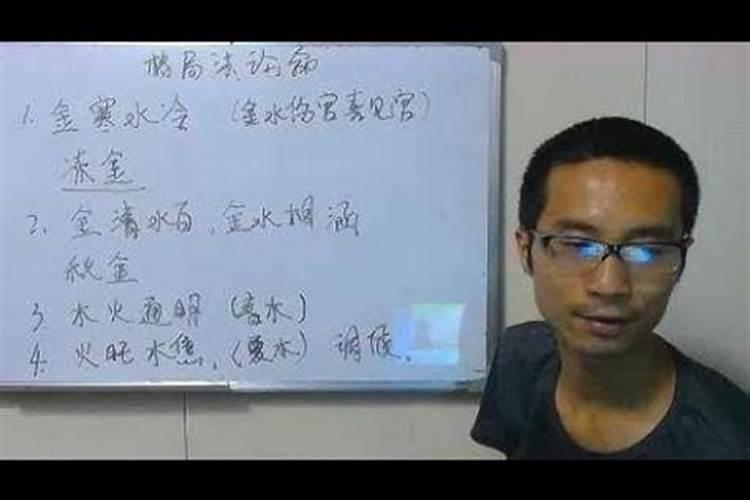 格局法论病
1. 金寒水冷 (金水伤官喜见官)
冻金
2. 金清水白、金水相涵
秋金
3 木火通明 (喜水)
4. 火旺木焦、(夏木) 调候、